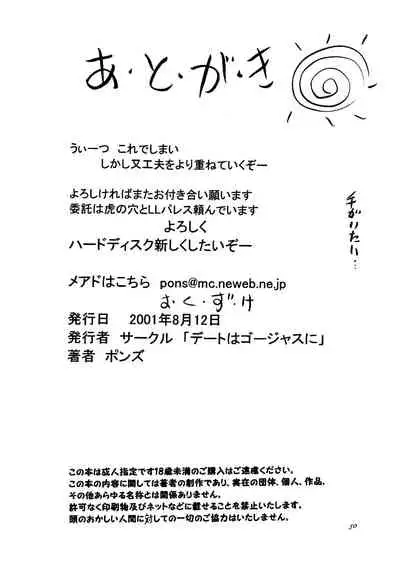 あ・と・が・き
うぃーつ これでしまい
しかし又工夫をより重ねていくぞー
よろしければまたお付き合い願います
委託は虎の穴とLLパレス頼んでいます
よろしく
ハードディスク新しくしたいぞー
メアドはこちら pons@mc.neweb.ne.jp
お・く・づ・け
発行日 2001年8月12日
発行者 サークル 「デートはゴージャスに」
著者 ポンズ
この本は成人指定です18歳未満のご購入はご遠慮ください。
この本の内容に関しては著者の創作であり、実在の団体、個人、作品、
その他あらゆる名称とは関係ありません。
許可なく印刷物及びネットなどに載せることを禁止いたします。
頭のおかしい人間に対しての一切のご協力はいたしません。
50